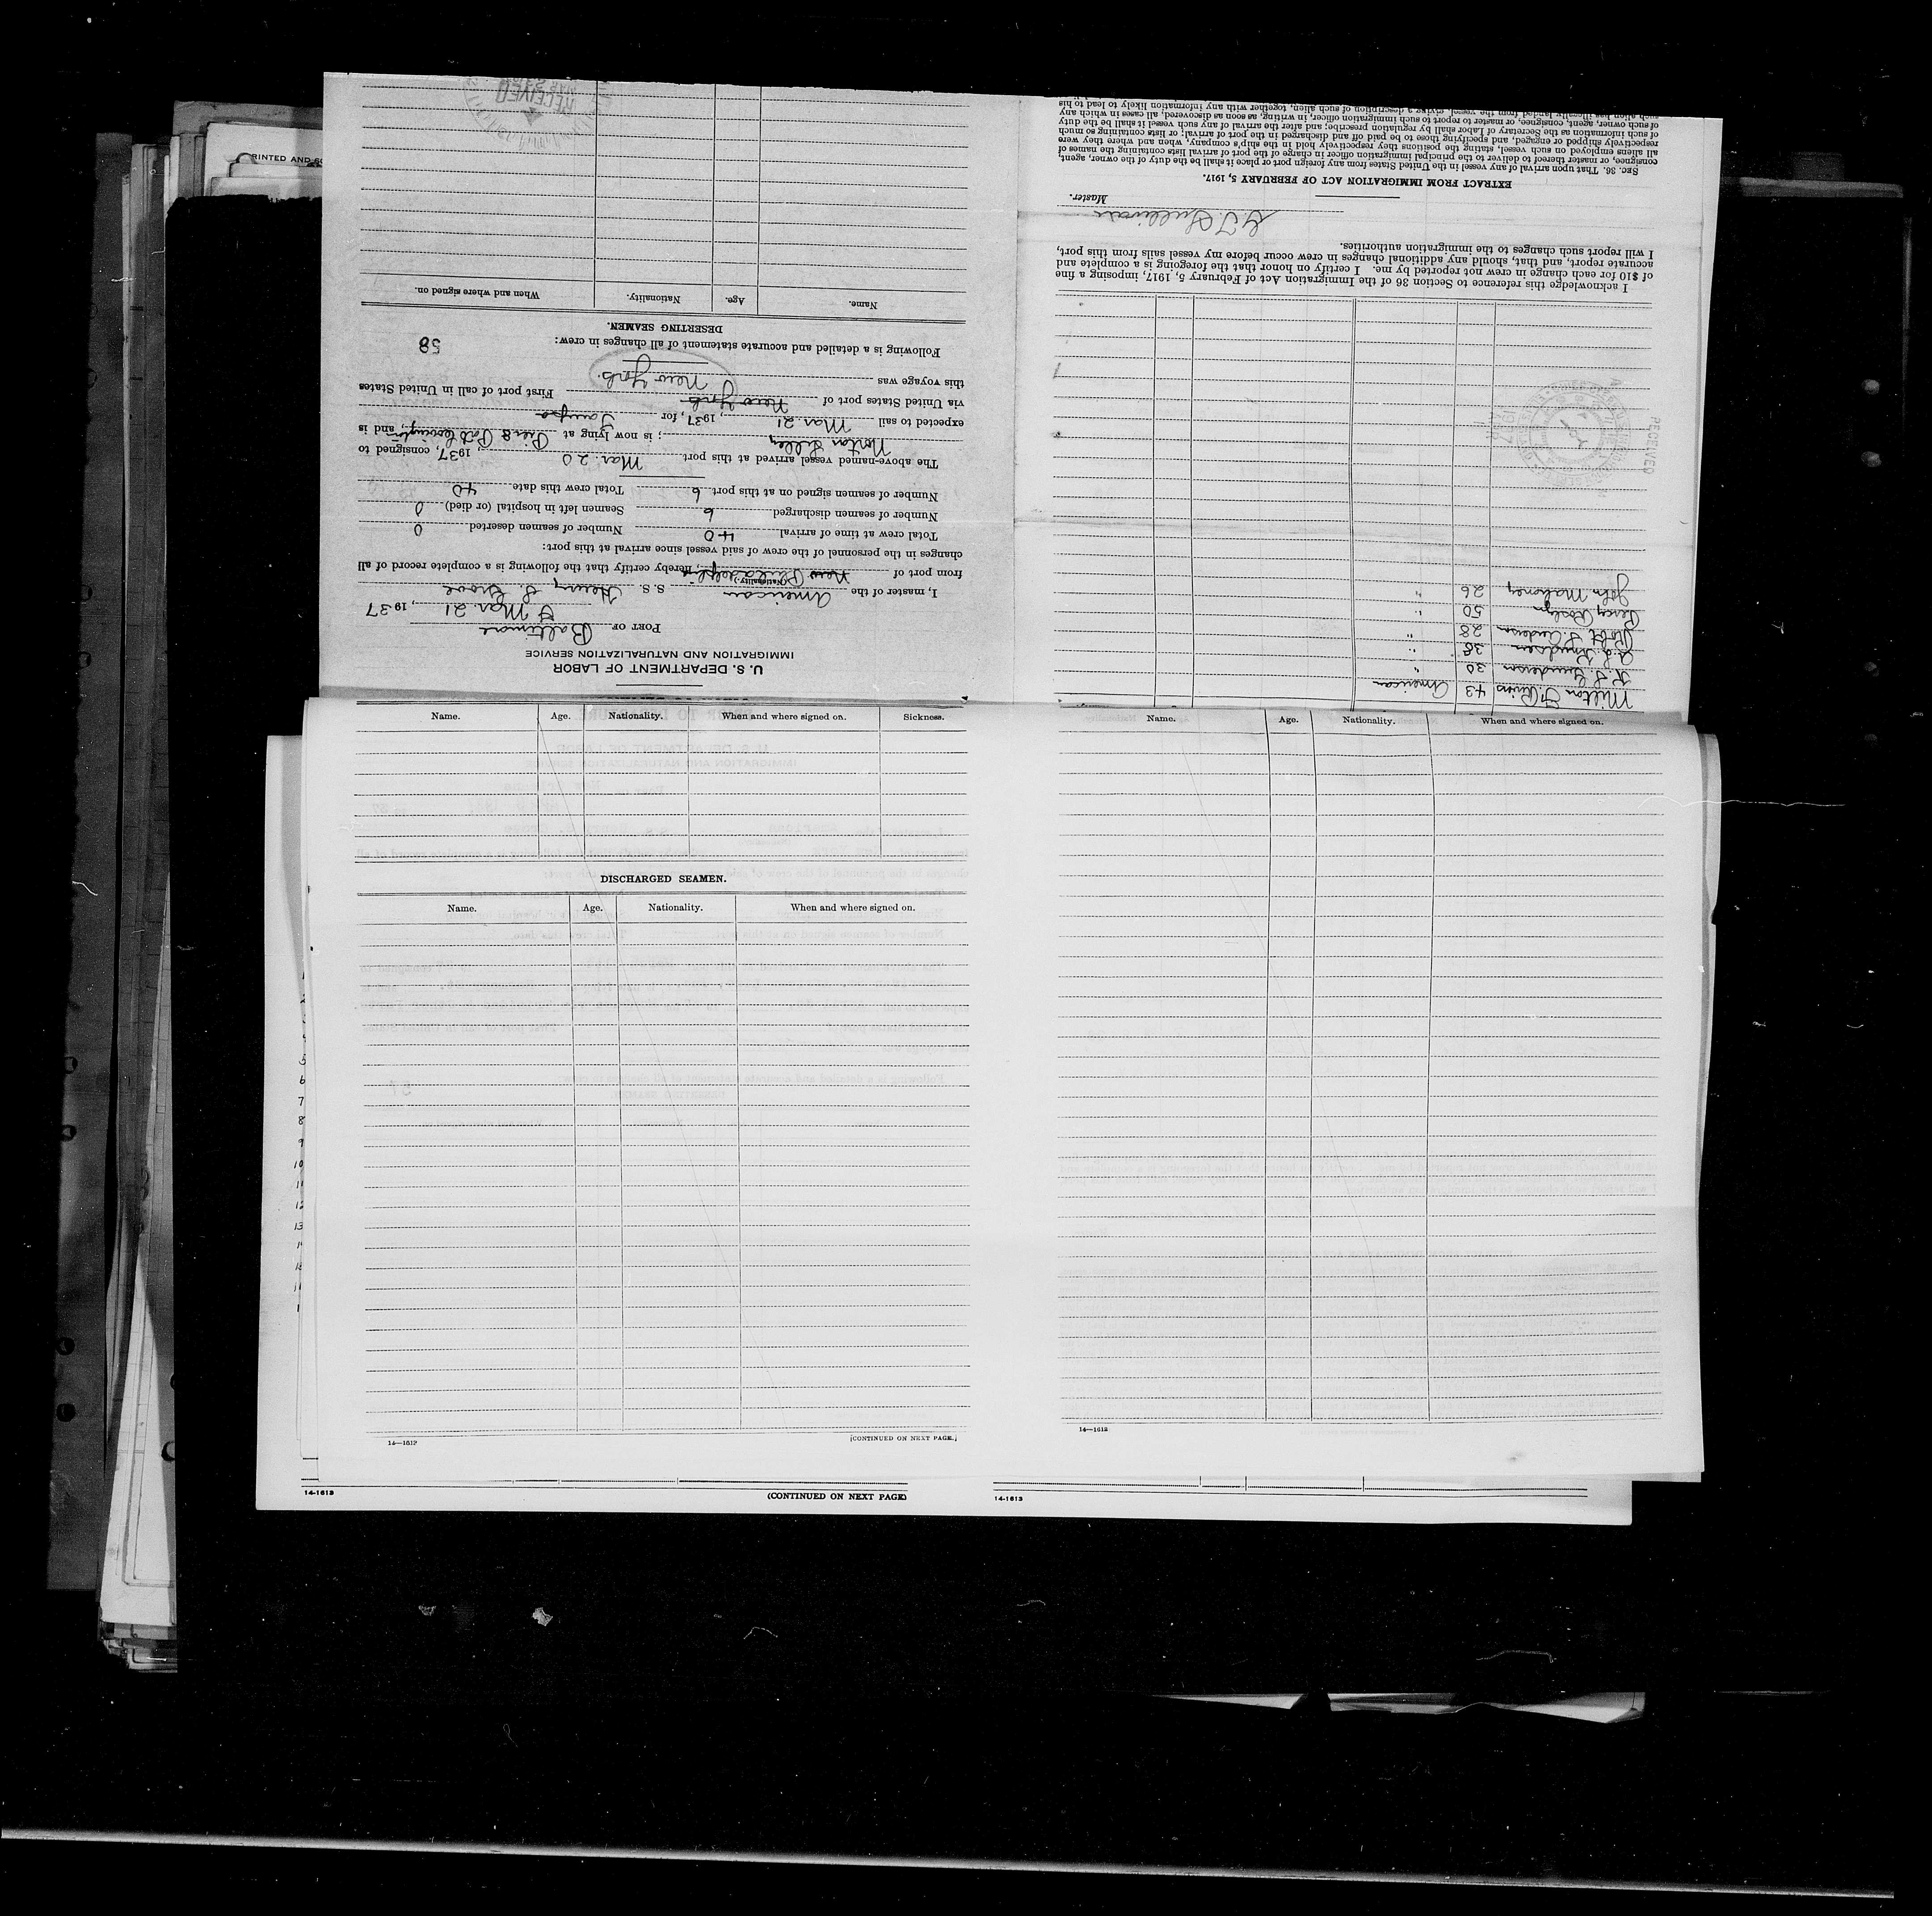 U. S. DEPARTMENT OF LABOR
IMMIGRATION AND NATURALIZATION SERVICE
PORT OF Baltimore
Mar. 21, 1937
I, master of the American S. S. Henry S. Grove
(Nationality.)
from port of New Philadelphia, hereby certify that the following is a complete record of all
changes in the personnel of the crew of said vessel since arrival at this port:
Total crew at time of arrival 40 Number of seamen deserted 0
Number of seamen discharged 6 Seamen left in hospital (or died) 0
Number of seamen signed on at this port 6 Total crew this date 40
The above-named vessel arrived at this port Mar. 20, 1937, consigned to
Norton Lilley; is now lying at Pier 8 Port Covington, and is
expected to sail Mar. 21, 1937, for Tampa
via United States port of New York First port of call in United States
this voyage was New York.
Following is a detailed and accurate statement of all changes in crew: 58
DESERTING SEAMEN.
Name. Age. Nationality. When and where signed on.
RECEIVED
Milton F. 43 American
R. S. Gunderson 30 "
A. L. Knudsen 38 "
Robt S. Anderson 28 "
Percy Roslyn 50 "
John Mahoney 26 "
RECEIVED
I acknowledge this reference to Section 36 of the Immigration Act of February 5, 1917, imposing a fine
of $10 for each change in crew not reported by me. I certify on honor that the foregoing is a complete and
accurate report, and that, should any additional changes in crew occur before my vessel sails from this port,
I will report such changes to the immigration authorities.
Sullivan
Master.
EXTRACT FROM IMMIGRATION ACT OF FEBRUARY 5, 1917.
SEC. 36. That upon arrival of any vessel in the United States from any foreign port or place it shall be the duty of the owner, agent,
consignee, or master thereof to deliver to the principal immigration officer in charge of the port of arrival lists containing the names of
all aliens employed on such vessel, stating the positions they respectively hold in the ship's company, when and where they were
respectively shipped or engaged, and specifying those to be paid off and discharged in the port of arrival; or lists containing so much
of such information as the Secretary of Labor shall by regulation prescribe; and after the arrival of any such vessel it shall be the duty
of such owner, agent, consignee, or master to report to such immigration officer, in writing, as soon as discovered, all cases in which any
such alien has illegally landed from the vessel, giving a description of such alien, together with any information likely to lead to his
Name. Age. Nationality. When and where signed on. Sickness.
DISCHARGED SEAMEN.
Name. Age. Nationality. When and where signed on.
14—1612
[CONTINUED ON NEXT PAGE.]
Name. Age. Nationality. When and where signed on.
14—1612
14-1613
(CONTINUED ON NEXT PAGE)
14-1613
RINTED AND
5
6
7
8
9
10
11
12
13